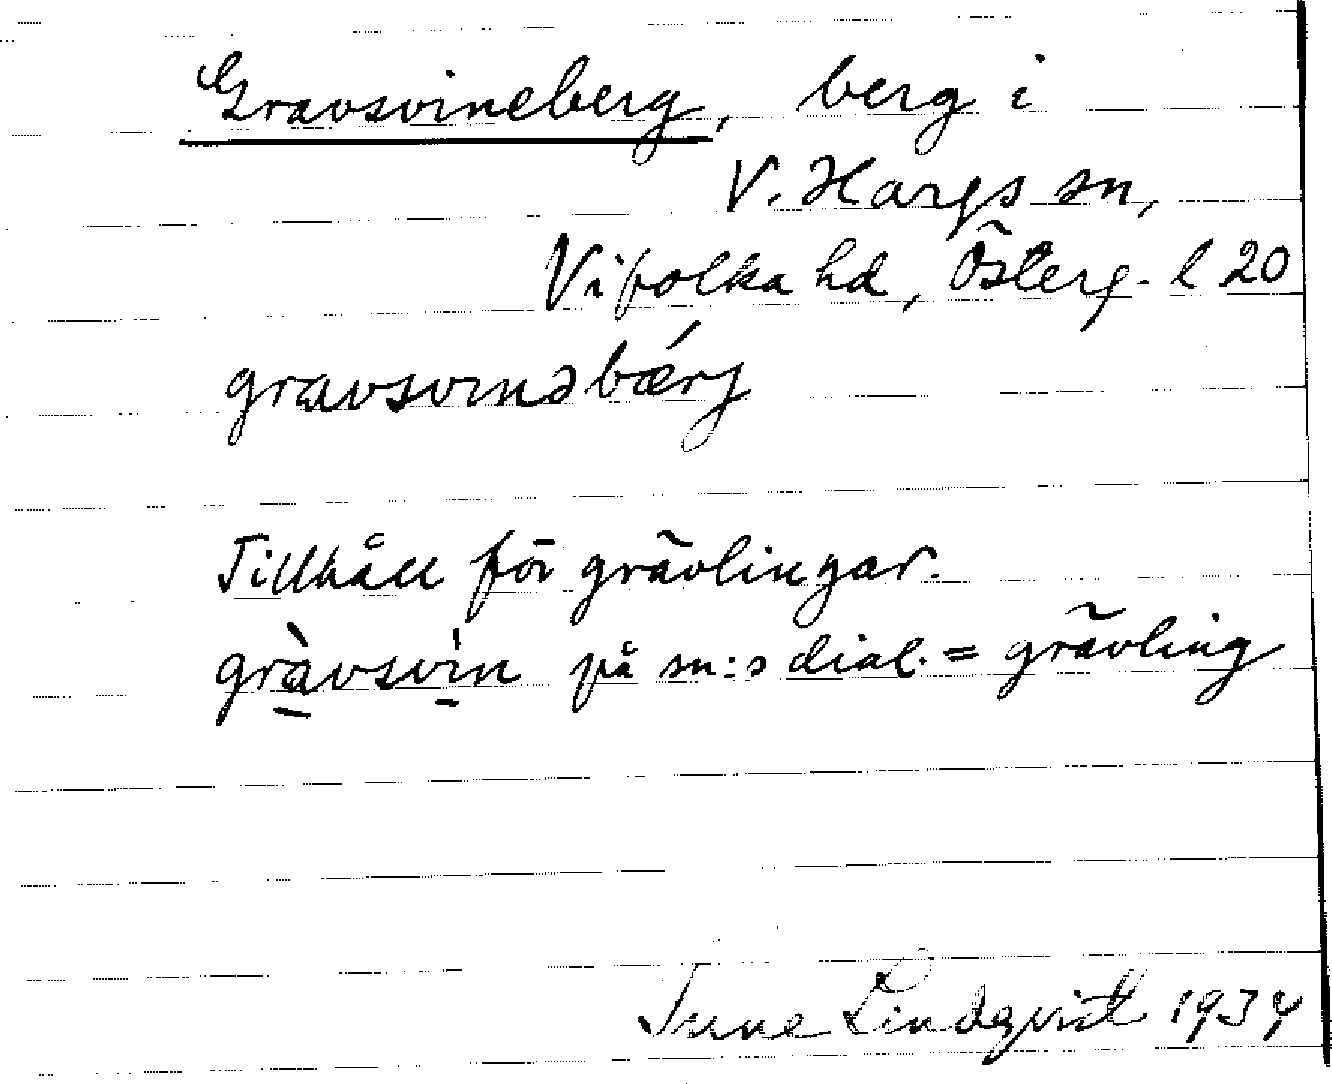 Gravsvineberg, berg i
V. Hargs sn,
Vifolka hd, Österg. l 20
gravsvinəbǽrj
Tillhåll för grävlingar.
gràvsvìn på sn:s dial. = grävling
Sune Lindqvist 1934